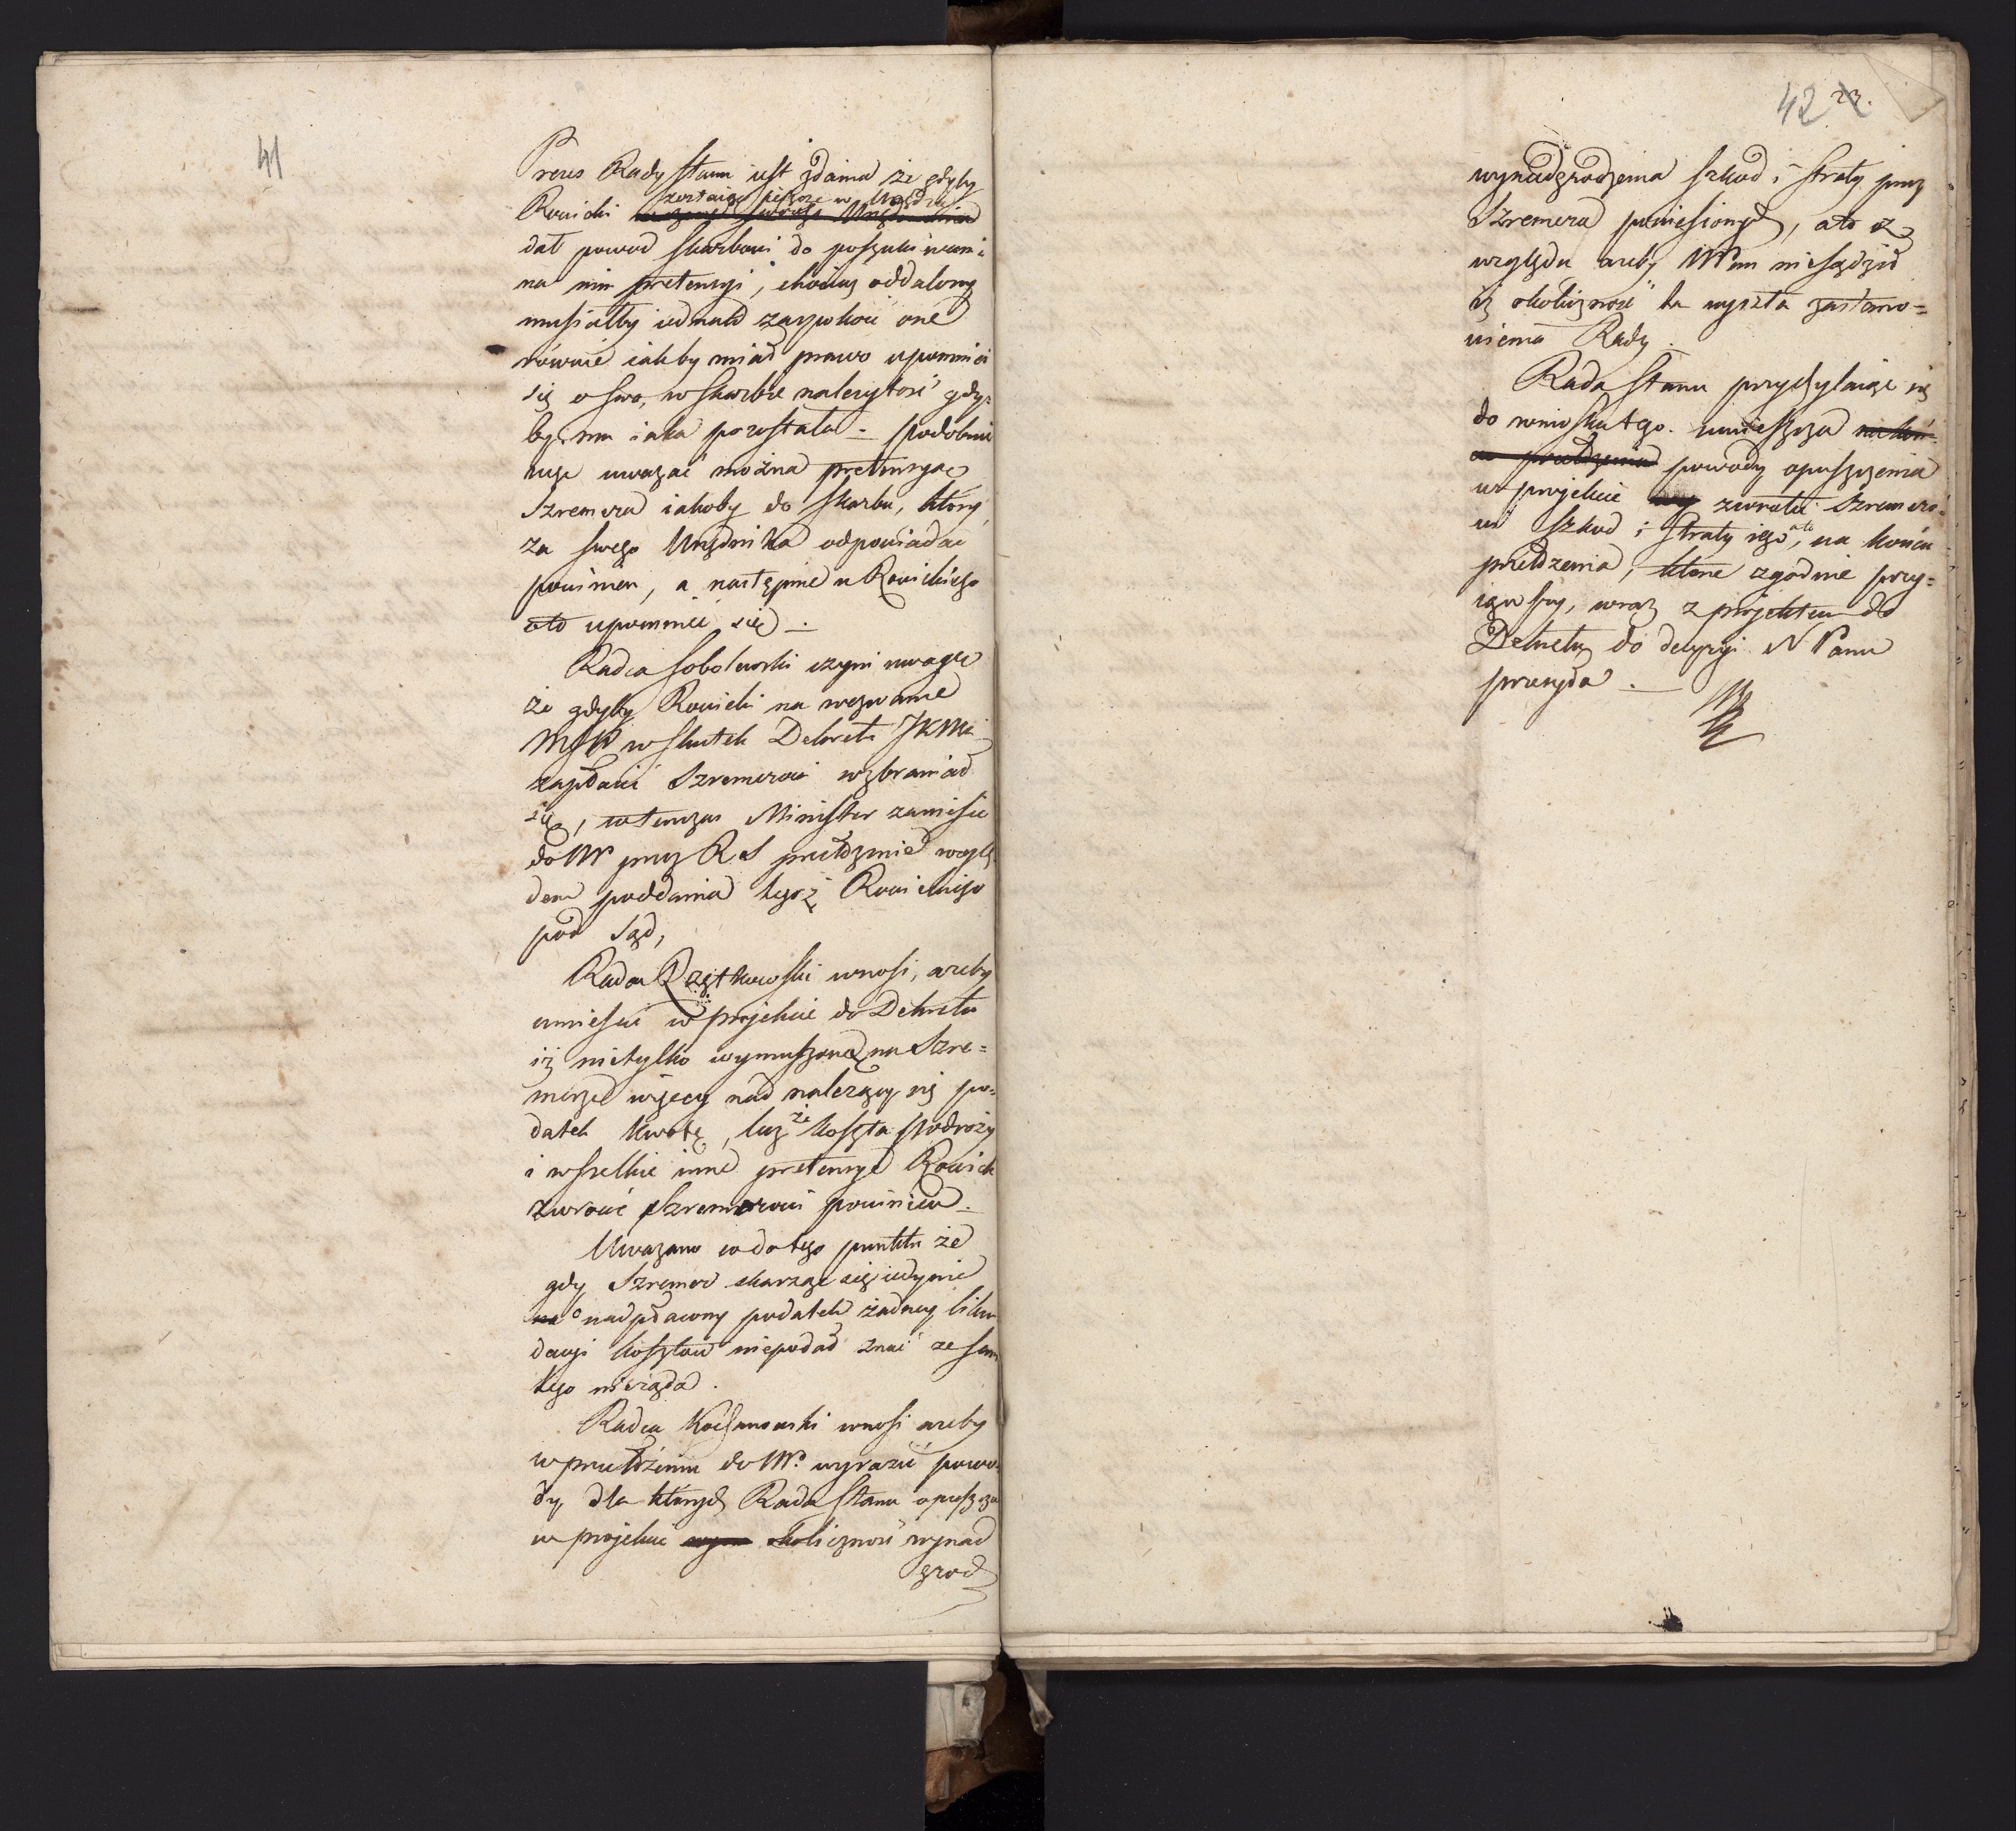 41
Prezes Rady Stanu iest zdania że gdyby
zostaiąc ieszcze w Urzędzie
Rowicki
dał powod Skarbowi do poszukiwani
na nim pretensyi, chociaż oddalony
musiałby iednak zaspokoić one
równie iakby miał prawo upomnieć
się o swą, w Skarbie należytość gdy=
by mu iaka pozostała — podobnie
więc uważać można pretensyą
Szremera iakoby do Skarbu, który
za swego Urzędnika odpowiadać
powinien, a następnie u Rowickiego
oto upomnieć się —
Radca Sobolewski czyni uwagę
że gdyby Rowicki na wezwanie
MSW w skutek Dekretu JKMci
zapłacić Szremerowi wzbraniał
się, wtenczas Minister zaniesie
do NP przez R.S przełożenie wzglę=
dem poddania tegoż Rowickiego
pod Sąd,
Radca Rzętkowski wnosi, ażeby
umieścić w projekcie do Dekretu
iż nietylko wymuszoną na Szre=
merze więcey nad należący się po=
datek kwotę, lecz że koszta podroży
i wszelkie inne pretensye Rowick
zwrócić Szremerowi powinien.
Uważano co do tego punktu że
gdy Szremer skarżąc się iedynie
na o nadpłacony podatek żadney likwi
dacyi kosztów niepodał znać że sam
tego nieżąda.
Radca Kochanowski wnosi ażeby
w przełożeniu do NP. wyrazić powo=
dy, dla których Rada Stanu opuszcza
w projekcie okoliczność wynad
grod
42 23.
wynadgrodzenia szkod i straty przez
Szremera poniesionych, a to z
względu ażeby NPan niesądził
iż okoliczność ta uszła zastano=
wienia Rady.
Rada Stanu przychylaiąc się
do wniosku tego. umieszcza na koń=
cu przełożenia powody opuszczenia
w projekcie zwrotu Szremero=
wi szkod i straty iego, ale na końcu
przełożenia, które zgodnie przy=
iąwszy, wraz z projektem do
Dekretu do decyzyi N Pana
przesyła. —